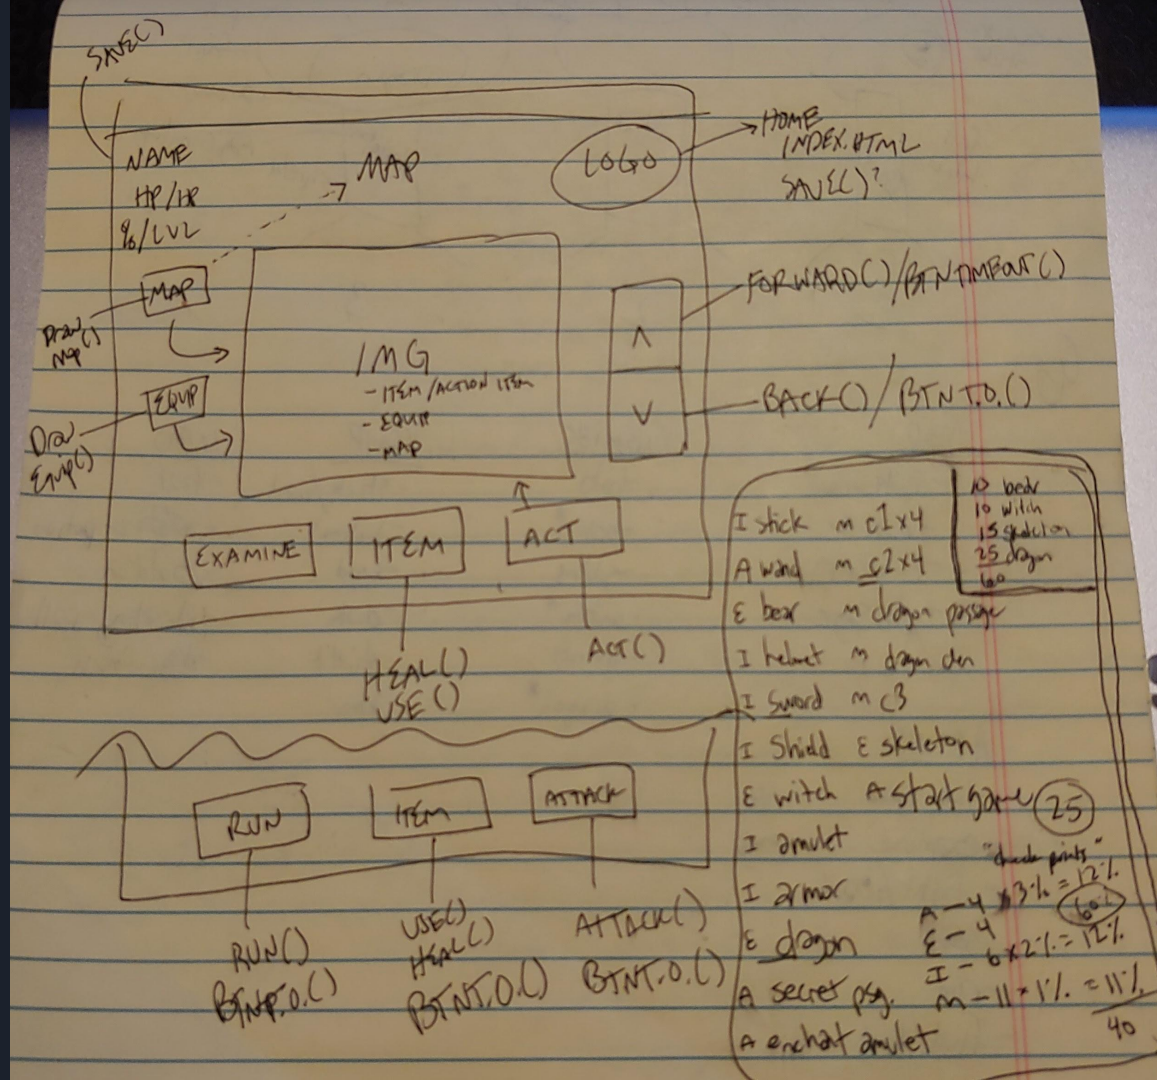 SAVE()
NAME
HP/HP
%/LVL
MAP
LOGO
HOME
INDEX.HTML
SAVE()?
MAP
Draw
Map()
EQUIP
Draw
Equip()
IMG
- ITEM/ACTION ITEM
- EQUIP
- MAP
Λ
V
FORWARD()/BTNTIMEOUT()
BACK()/BTNT.O.()
EXAMINE
ITEM
ACT
HEAL()
USE()
ACT()
RUN
ITEM
ATTACK
RUN()
BTNT.O.()
USE()
HEAL()
BTNT.O.()
ATTACK()
BTNT.O.()
10 bear
10 witch
15 skeleton
25 dragon
60
I stick m c1x4
A wand m c2x4
E bear m dragon passage
I helmet m dragon den
I Sword m c3
I Shield E skeleton
E witch A start game 25
I amulet
I armor
E dragon
A secret psg.
A enchat amulet
"check points"
A - 4 x 3% = 12%
E - 4 60%
I - 6 x 2% = 12%
m - 11 x 1% = 11%
40